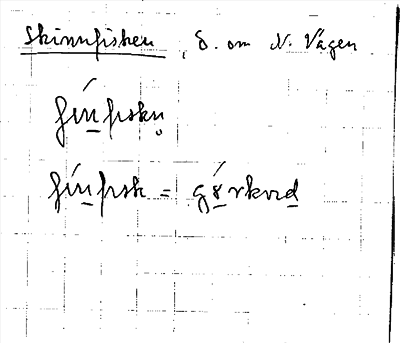 Skinnfisken, S. om N. Vägen
fín̲fiskn̥
fín̲fisk = gɤ́rkvid